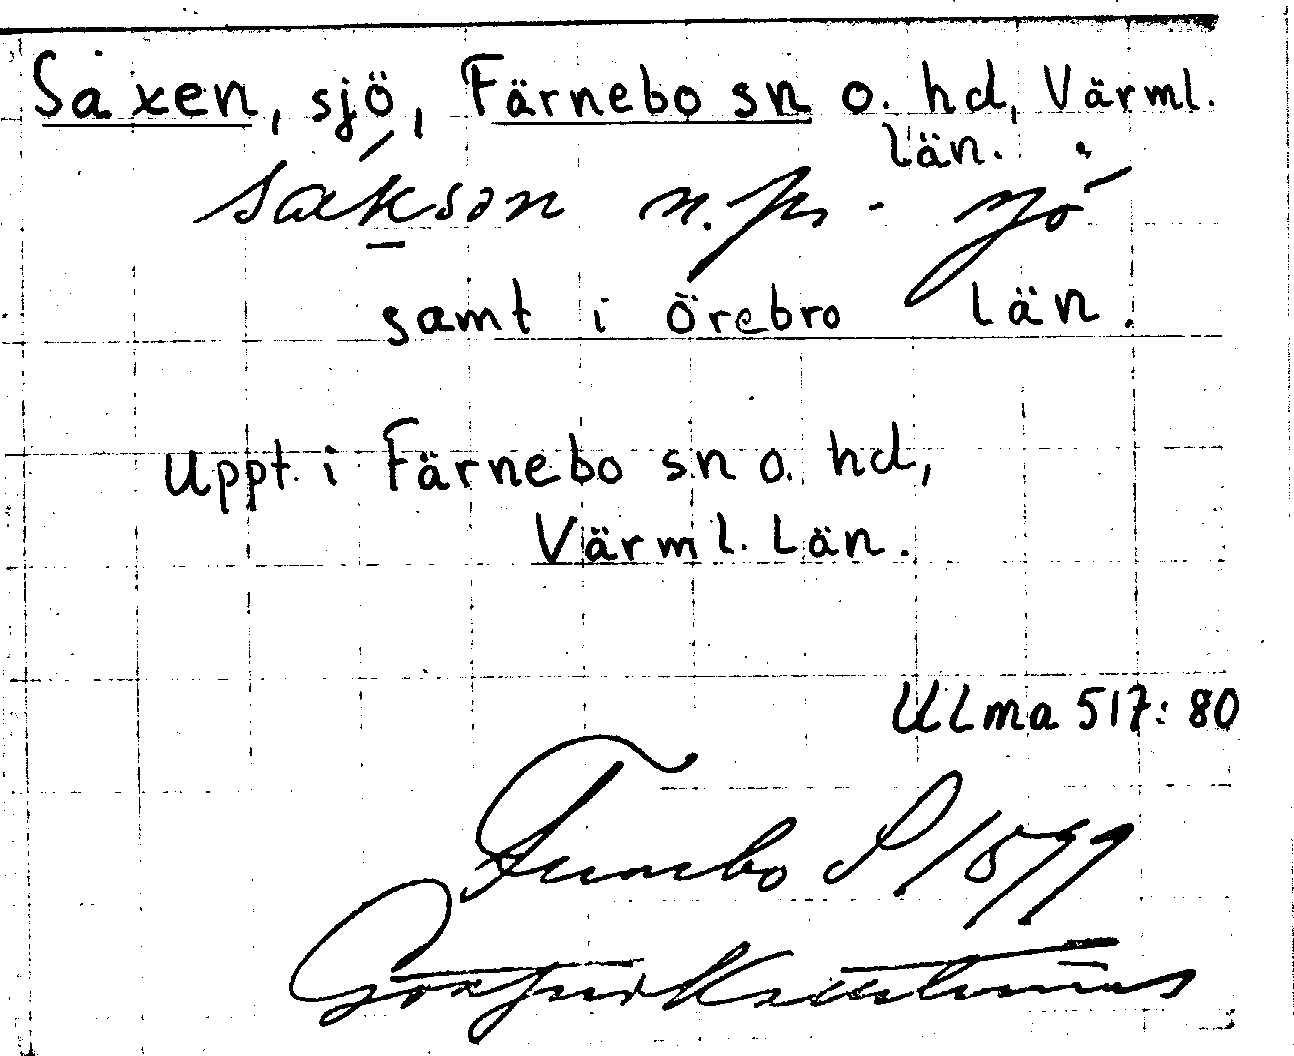 Saxen, sjö, Färnebo sn o. hd, Värml.
län.
saksən n. pr. - sjö
samt i Örebro län.
uppt. i Färnebo sn o. hd,
Värml. Län.
ULma 517: 80
Fernebo S
Gottfrid Kallstenius